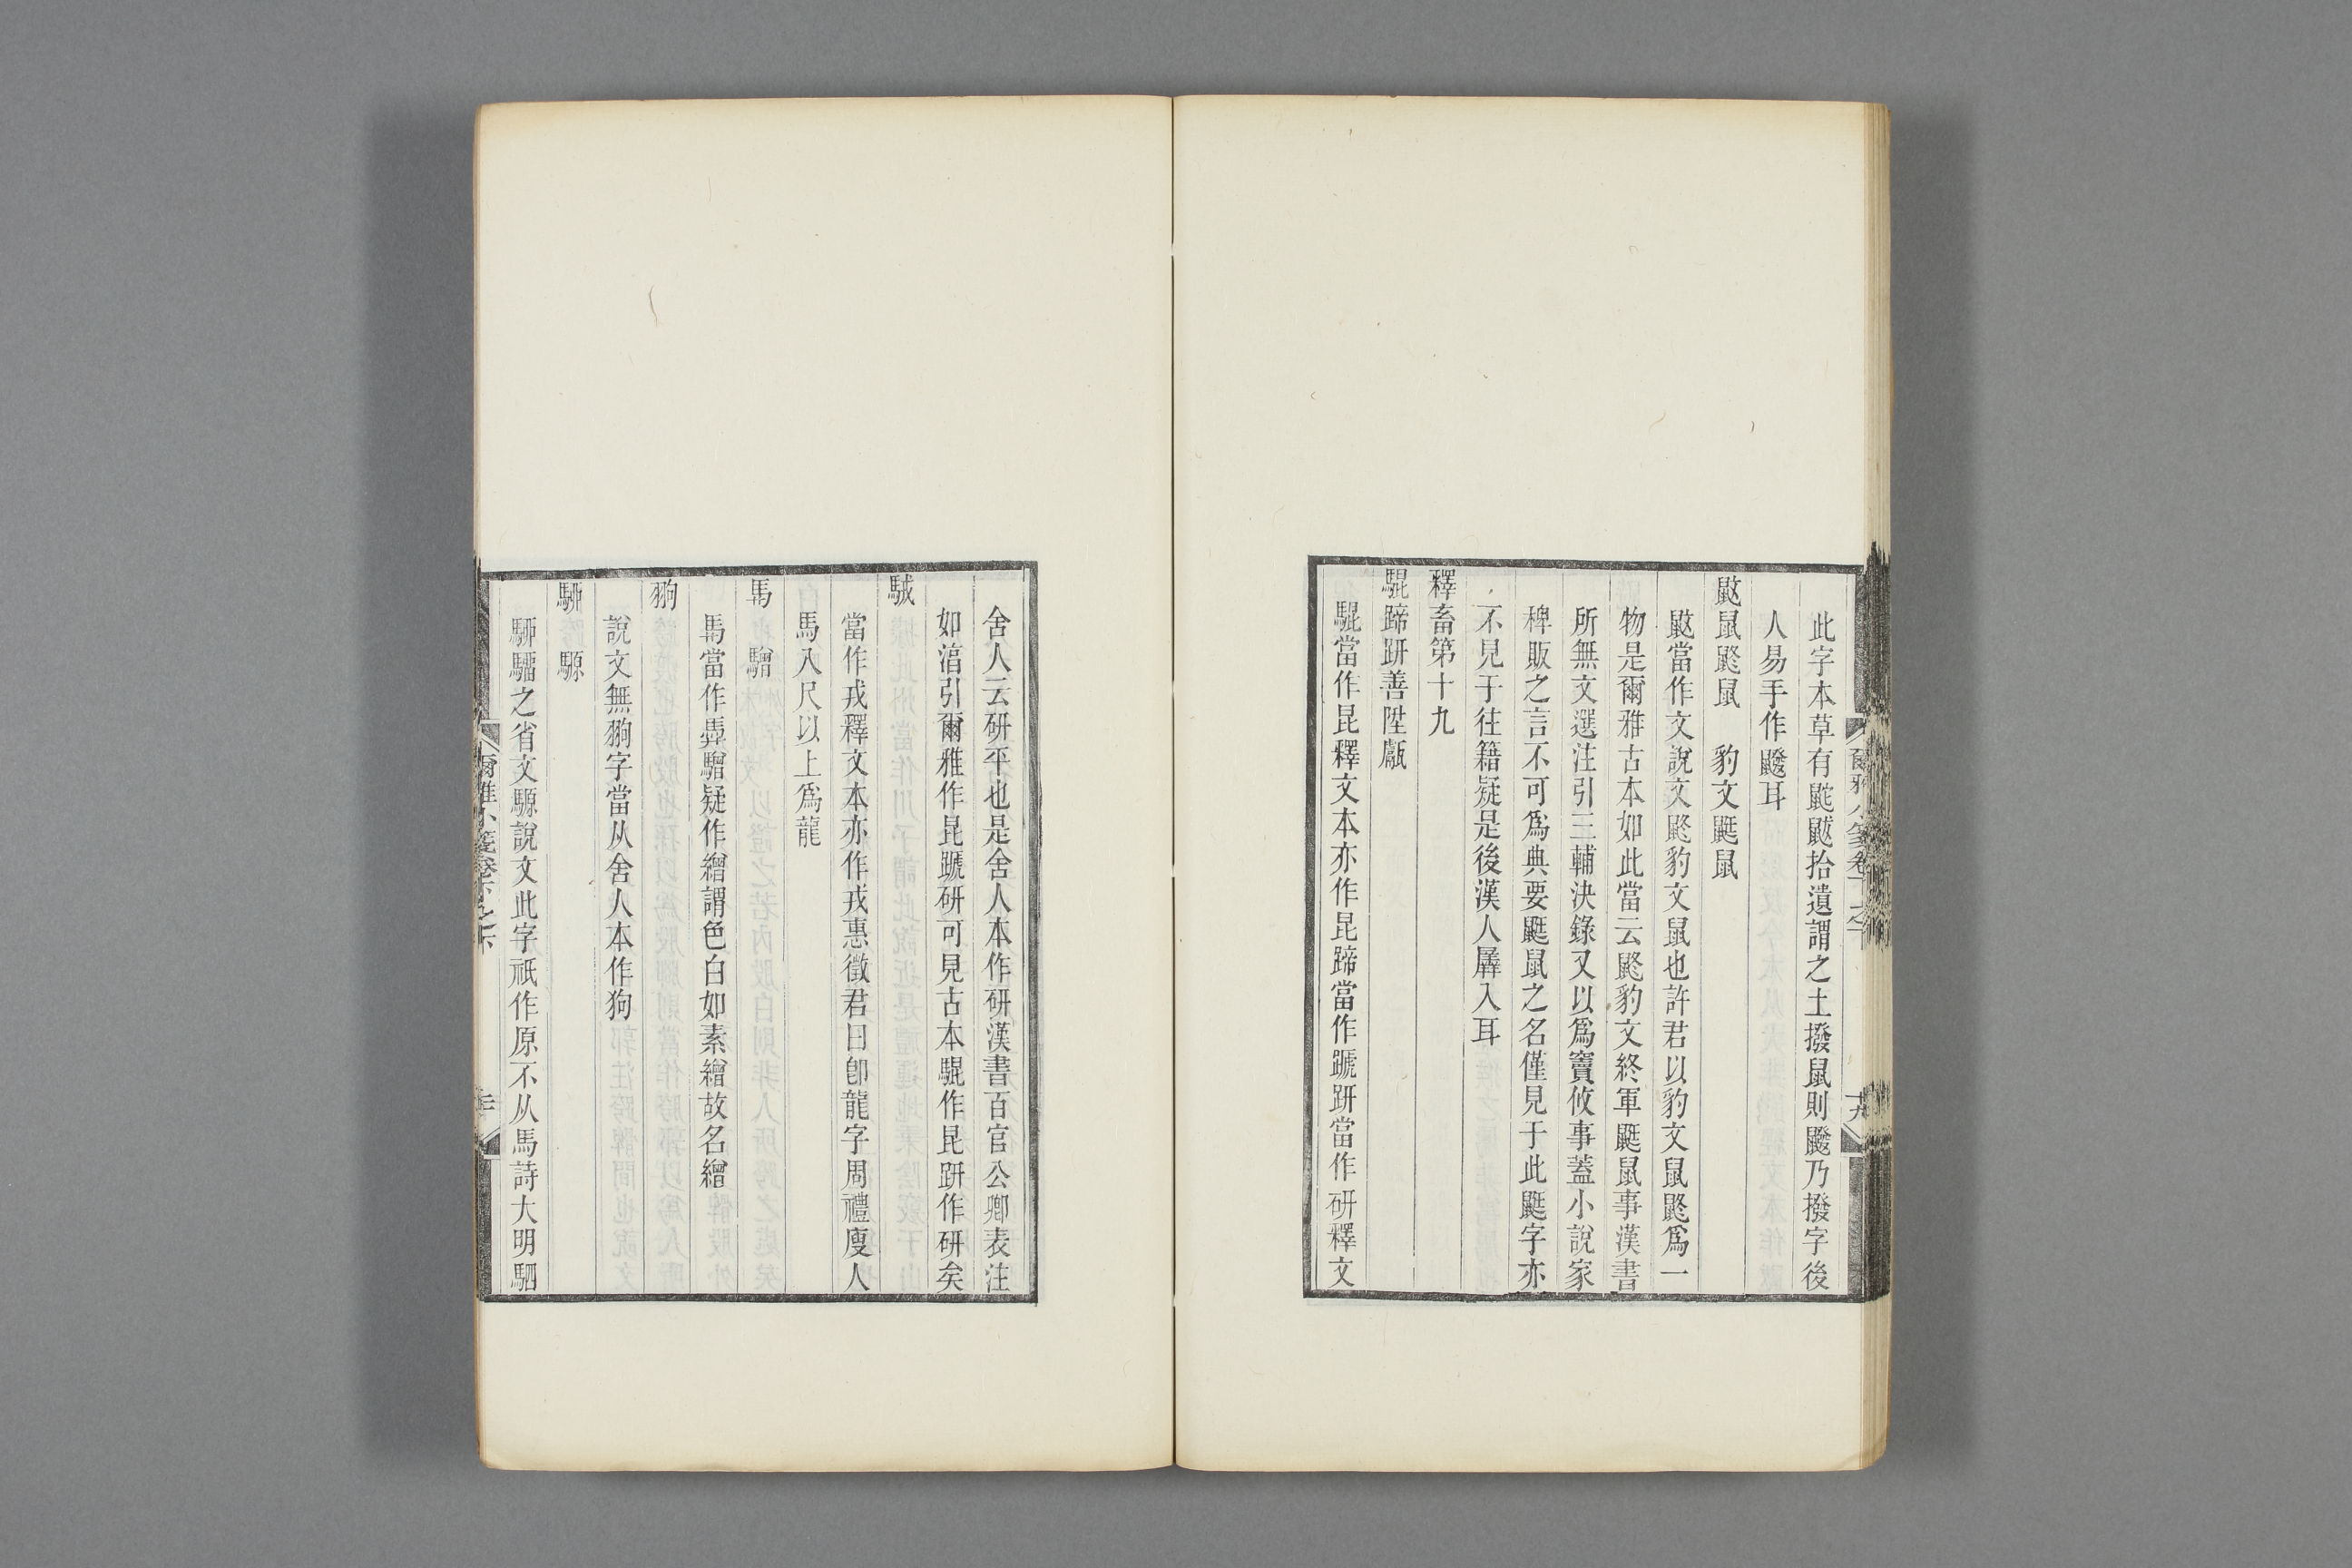 此字本草有鼧鼥拾遺謂之土撥鼠則鼥乃撥字後
人易手作鼥耳
鼤鼠鼨鼠　豹文鼮鼠
鼤當作文說文鼨豹文鼠也許君以豹文鼠鼨爲一
物是爾雅古本如此當云鼨豹文終軍鼮鼠事漢書
所無文選注引三輔決錄又以爲竇攸事蓋小說家
稗販之言不可爲典要鼮鼠之名僅見于此鼮字亦
不見于往籍疑是後漢人羼入耳
釋畜第十九
騉蹄趼善陞甗
騉當作昆釋文本亦作昆蹄當作蹏趼當作研釋文
舍人云研平也是舍人本作研漢書百官公卿表注
如淳引爾雅作昆蹏研可見古本騉作昆趼作研矣
駥
當作戎釋文本亦作戎惠徵君曰卽龍字周禮廋人
馬八尺以上爲龍
馵　驓
馵當作馵驓疑作繒謂色白如素繒故名繒
豞
說文無豞字當从舍人本作狗
騂　騵
之省文騵說文此字祇作原不从馬詩大明駟
爾雅小箋卷下之下